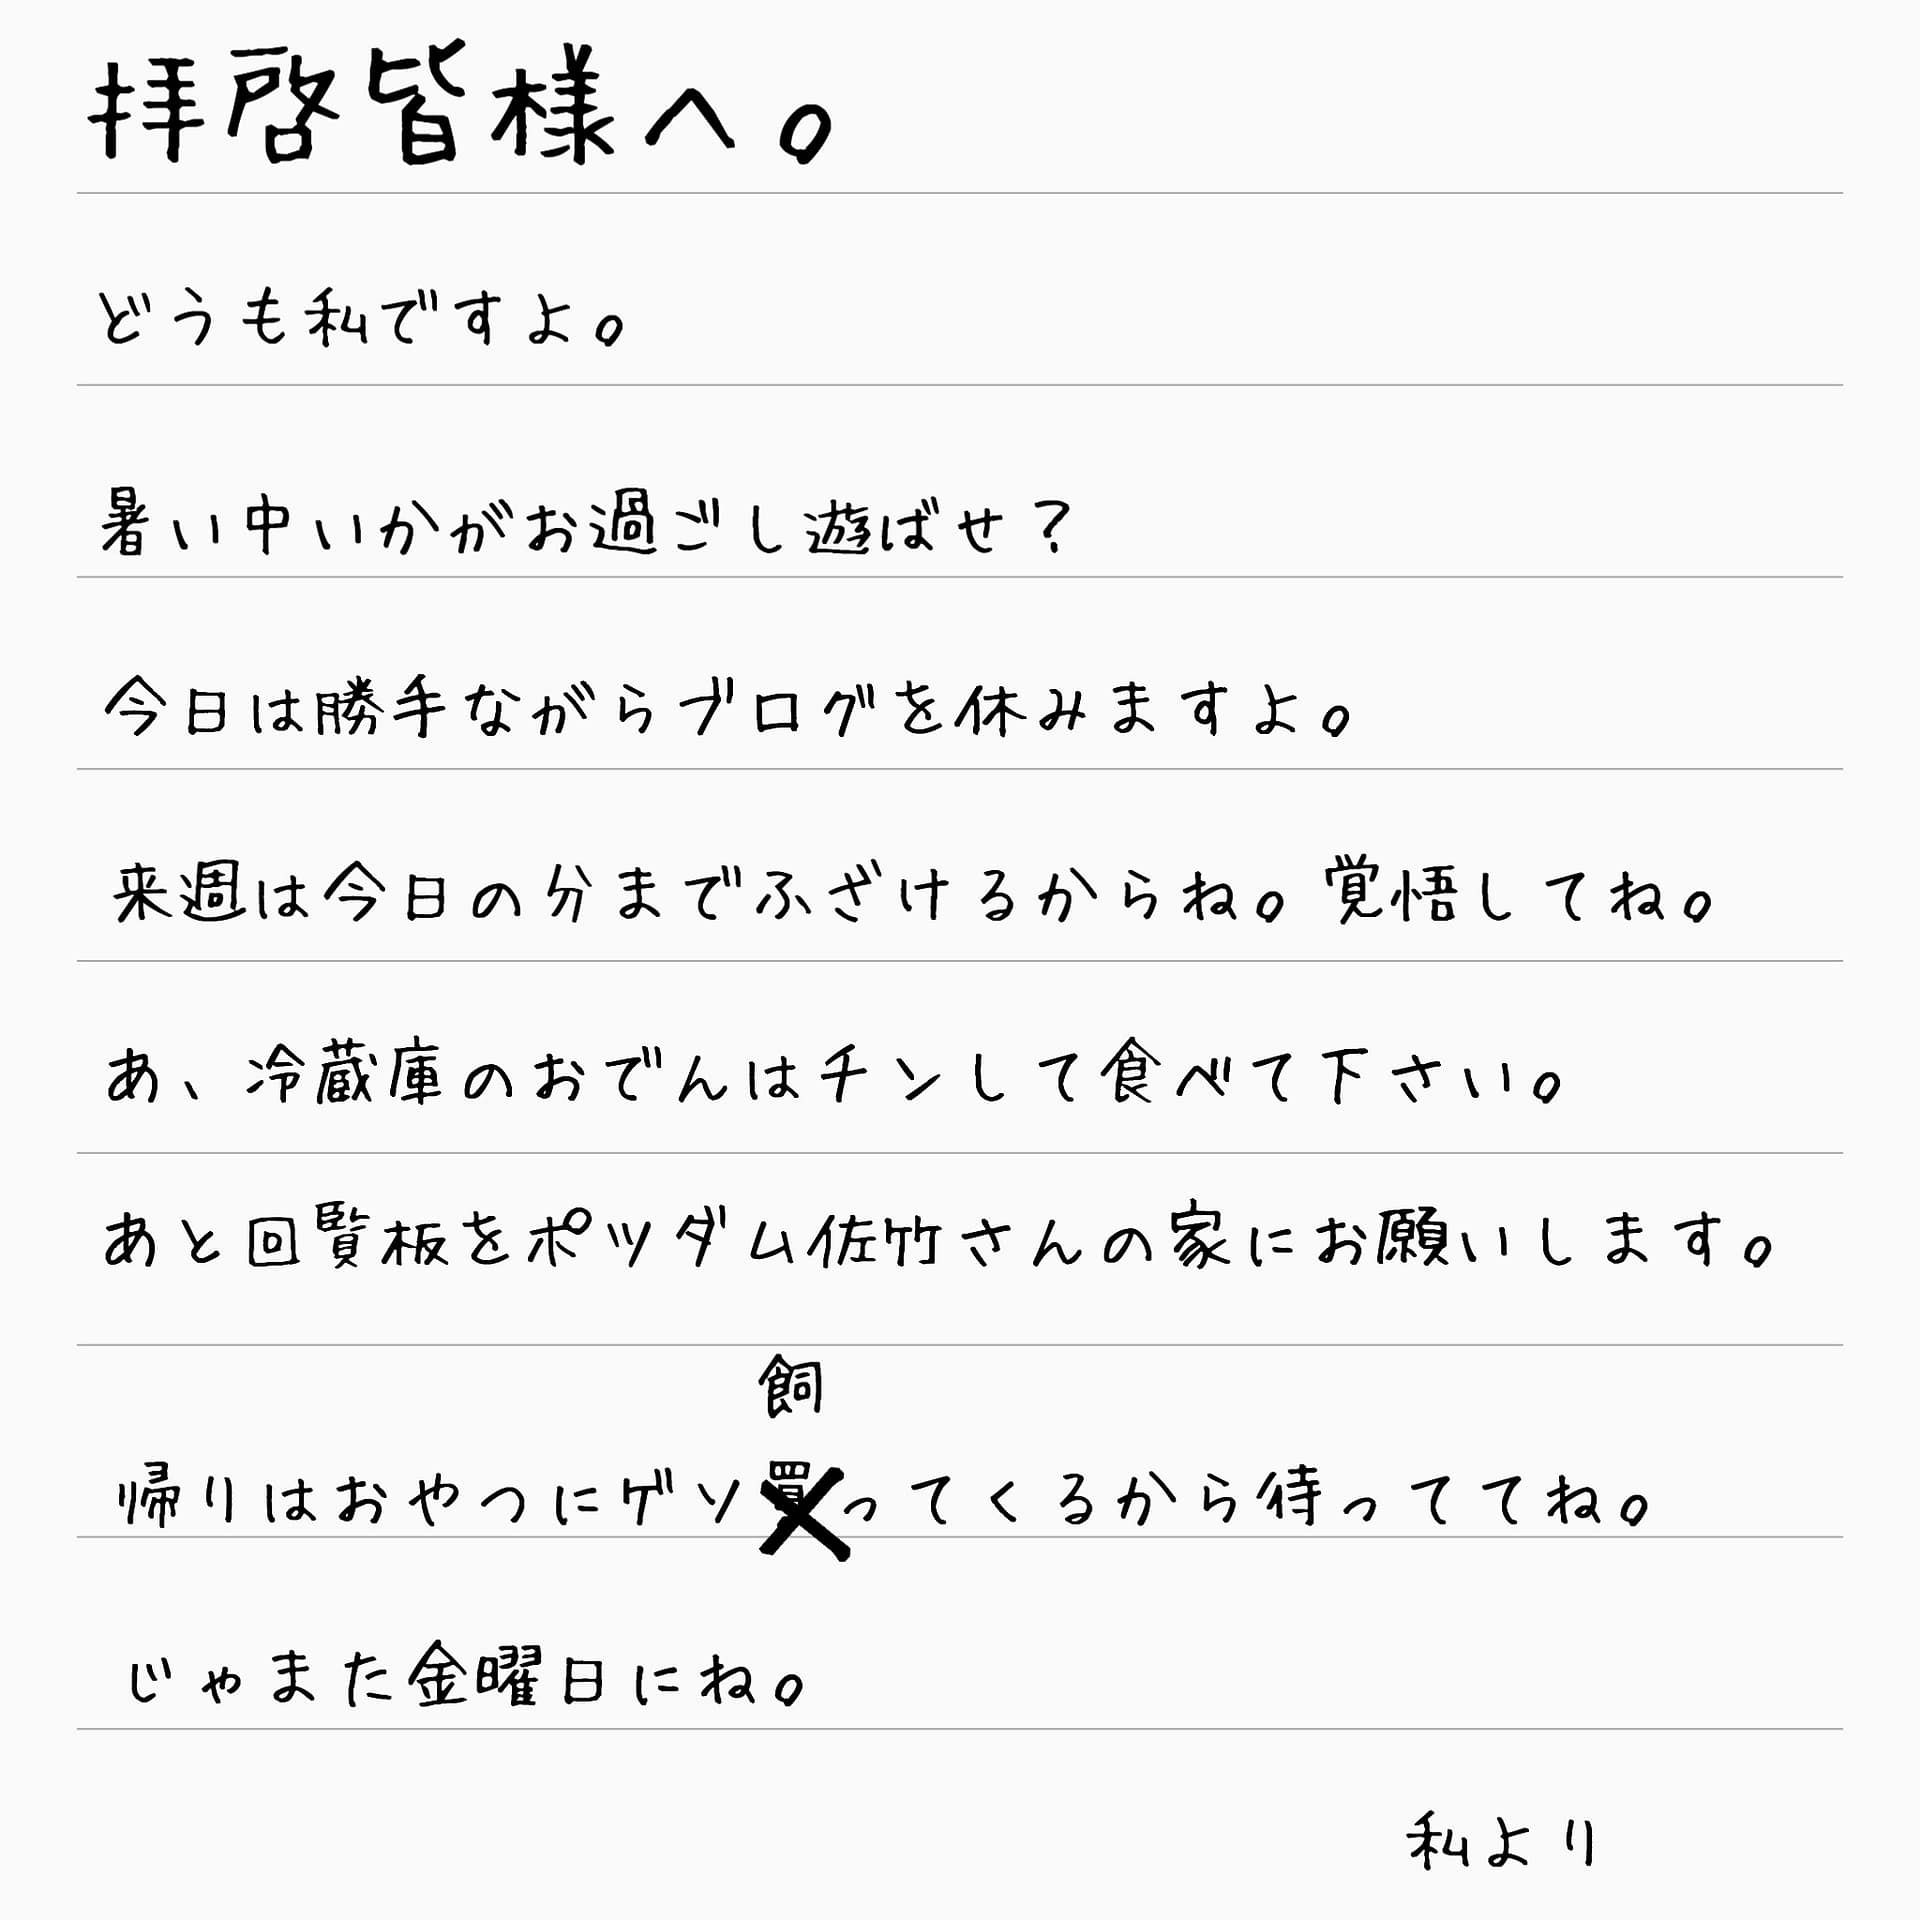 拝啓皆様へ。
どうも私ですよ。
暑い中いかがお過ごし遊ばせ？
今日は勝手ながらブログを休みますよ。
来週は今日の分までふざけるからね。覚悟してね。
あ、冷蔵庫のおでんはチンして食べて下さい。
あと回覧板をポツダム佐竹さんの家にお願いします。
飼
帰りはおやつにゲソ買ってくるから待っててね。
じゃまた金曜日にね。
私より